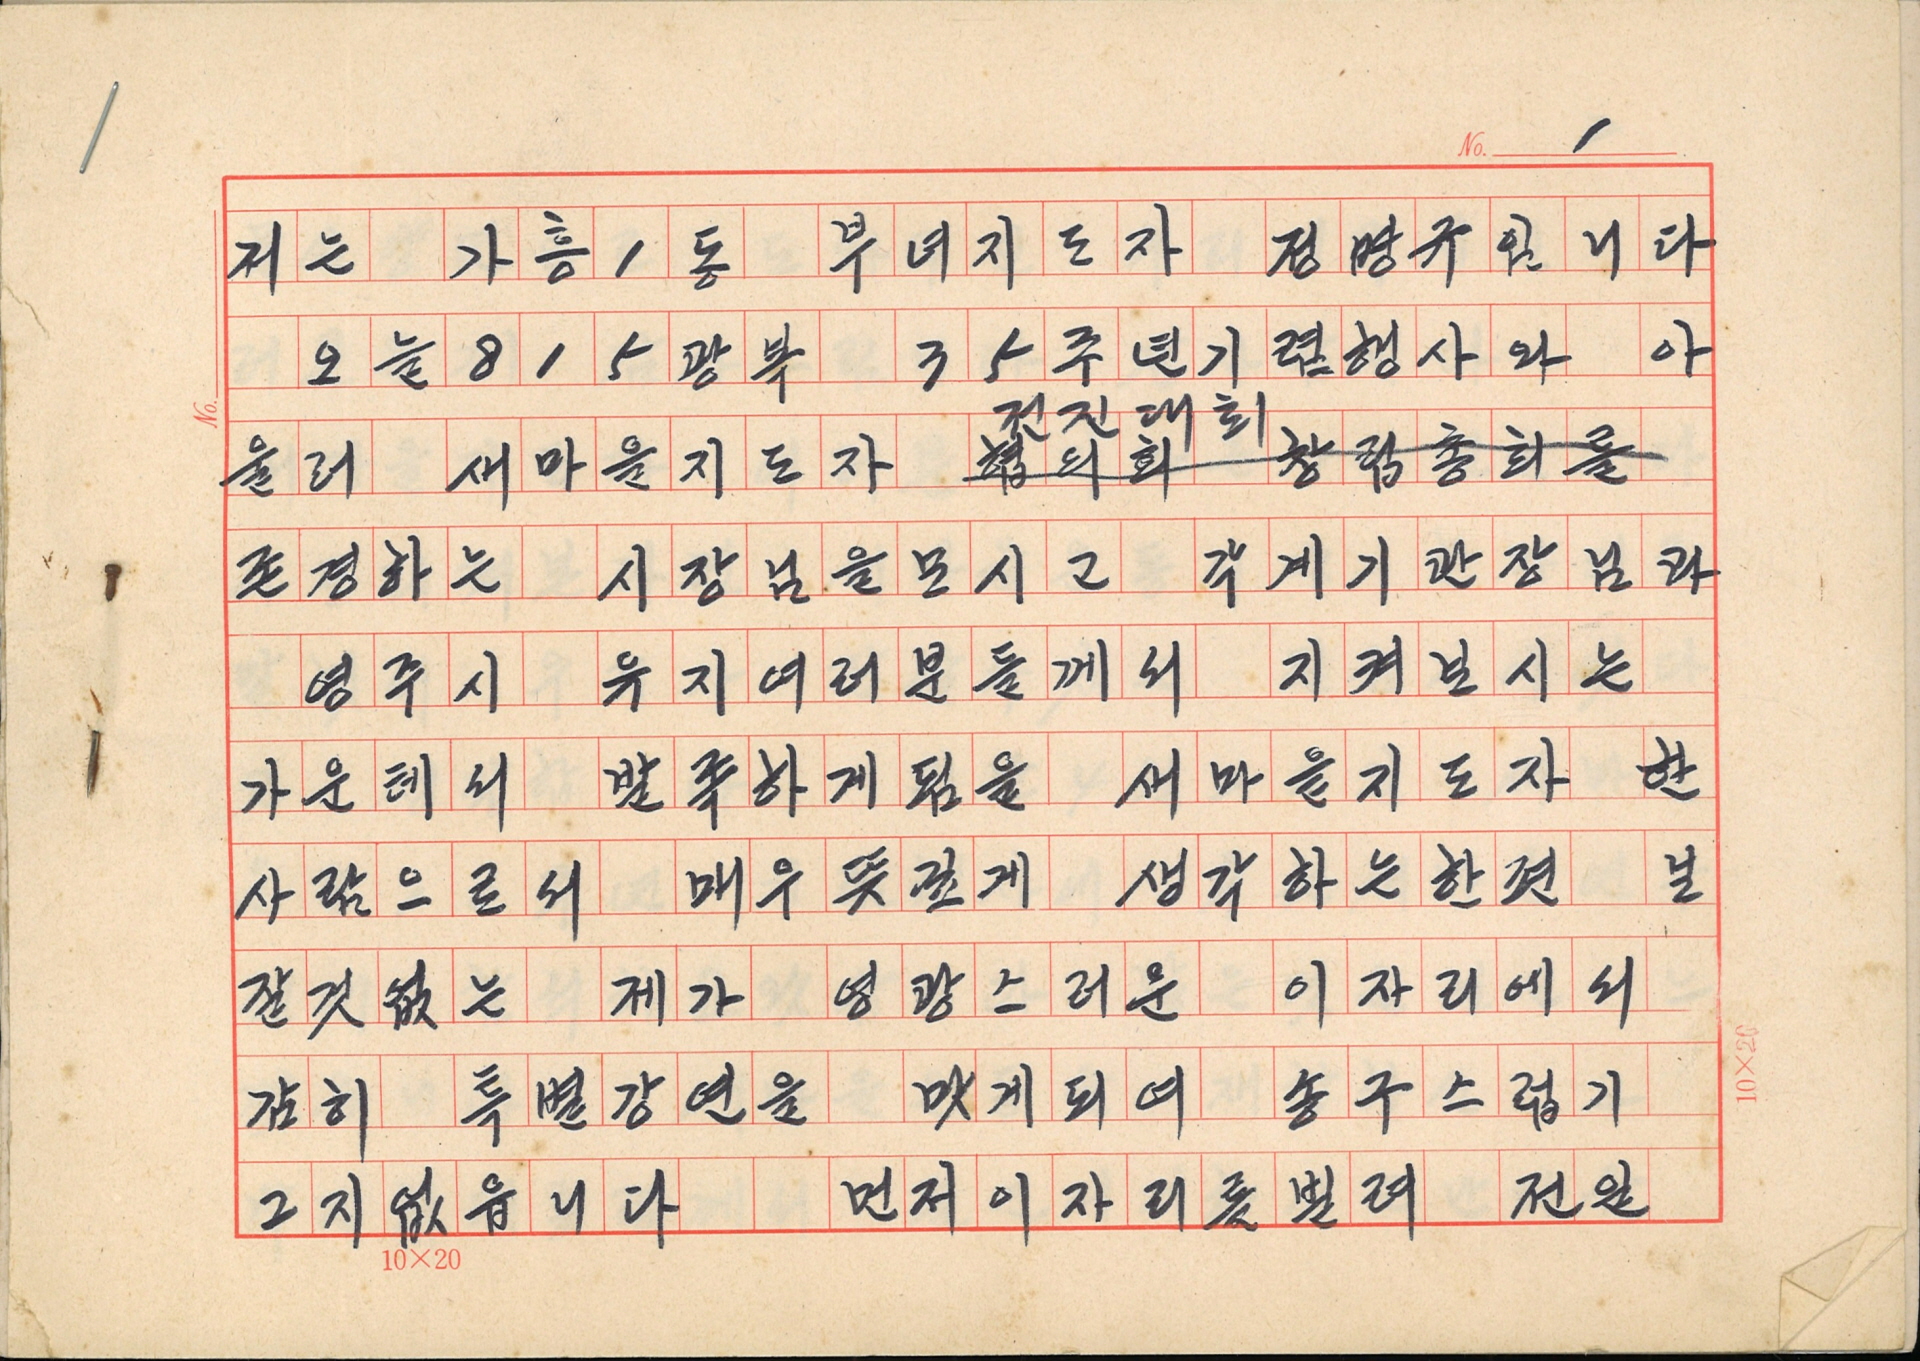 No. 1
저는 가흥1동 부녀지도자 정명규입니다
오늘815광복 35주년기렴행사와 아
전진대회
울러 새마을지도자 협의회 창립총회를
존경하는 시장님을모시고 각계기관장님과
영주시 유지여러분들께서 지켜보시는
가운테서 발족하게됨을 새마을지도자 한
사람으로서 매우뜻깊게 생각하는한편 보
잘것없는 제가 영광스러운 이자리에서
감히 특별강연을 맛게되여 송구스럽기
그지없읍니다 먼저이자리를빌려 전원
10×20
No.
10×20